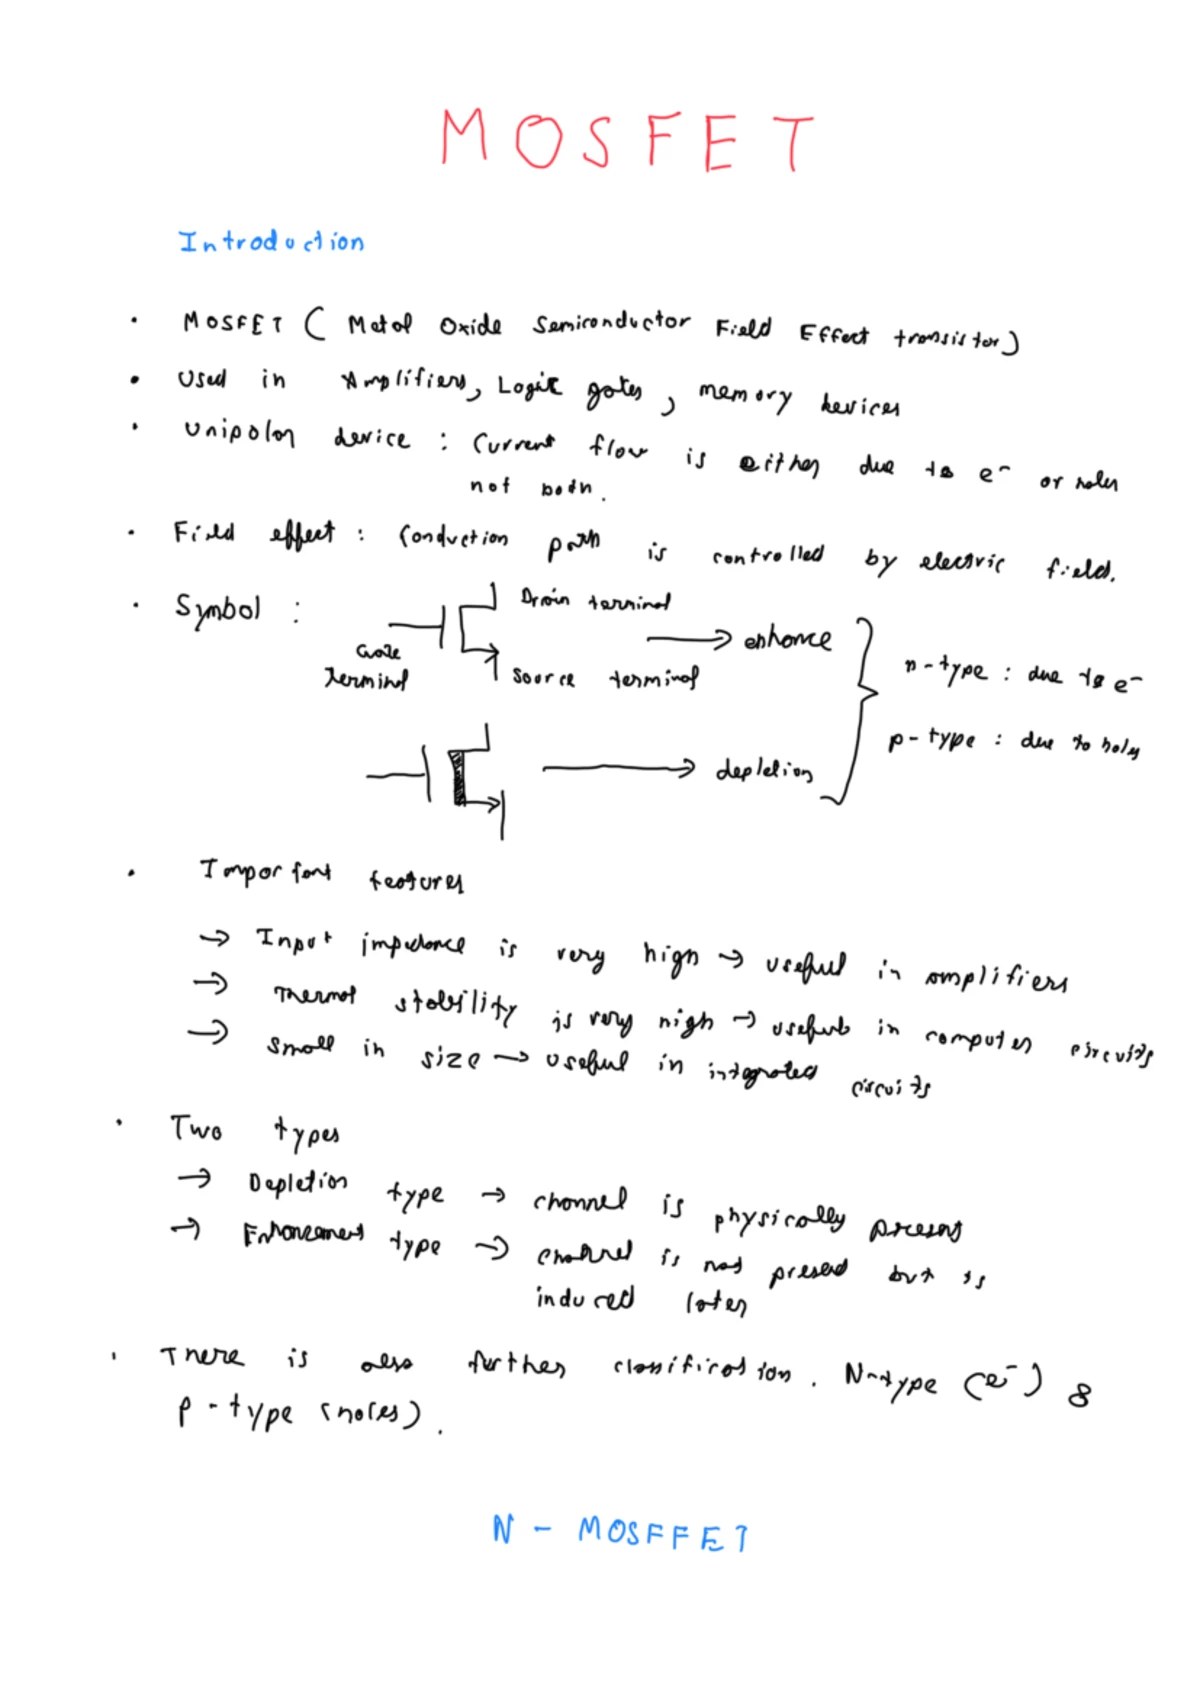 MOSFET
Introduction
• MOSFET ( Metal Oxide Semiconductor Field Effect transistor)
• Used in Amplifiers, Logic gates, memory devices
• Unipolar device : Current flow is either due to e⁻ or holes
not both.
• Field effect : Conduction path is controlled by electric field.
• Symbol :
Drain terminal
Gate
terminal
Source terminal
→ enhance
n-type : due to e⁻
p-type : due to holes
→ depletion
• Important features
→ Input impedance is very high → useful in amplifiers
→ Thermal stability is very high → useful in computer circuits
→ small in size → useful in integrated circuits
• Two types
→ Depletion type → channel is physically present
→ Enhancement type → channel is not present but is
induced later
• There is also further classification. N-type (e⁻) &
p-type (holes).
N - MOSFFET